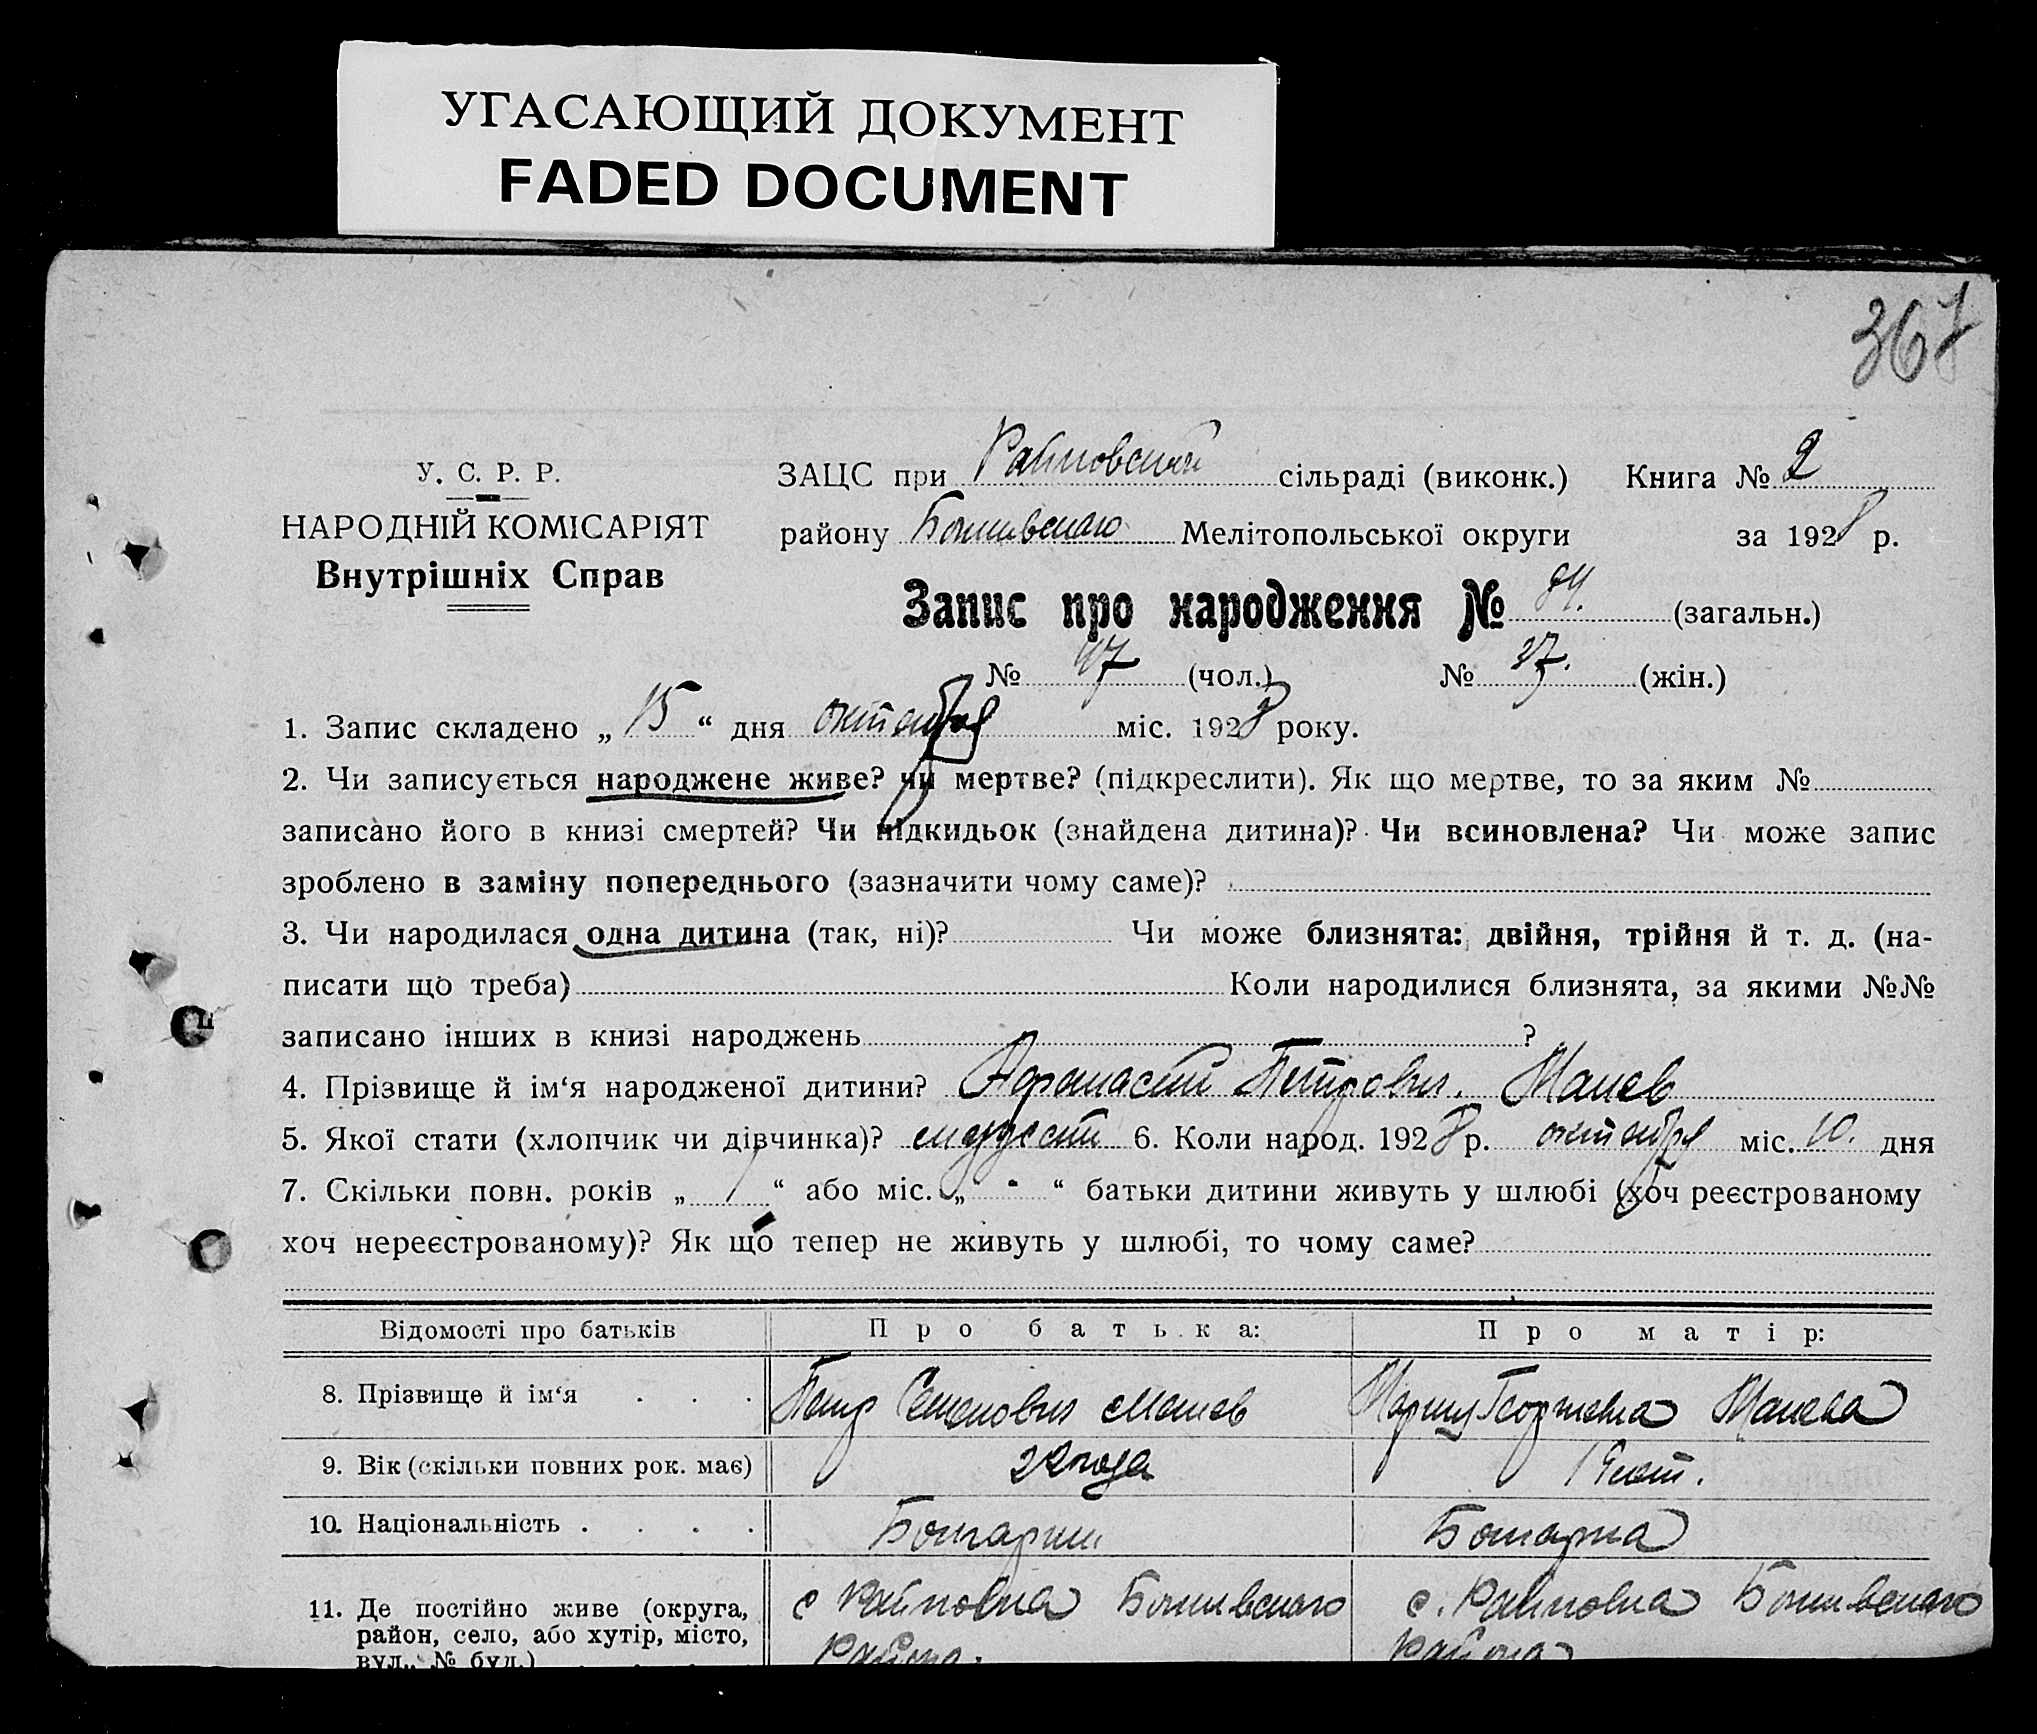 УГАСАЮЩИЙ ДОКУМЕНТ
FADED DOCUMENT
367
У. С. Р. Р.
НАРОДНІЙ КОМІСАРІЯТ
Внутрішніх Справ
ЗАЦС при Райновской сільраді (виконк.) Книга № 2
району Мелітопольської округи за 1928 р.
Запис про народження № 84. (загальн.)
№ 47 (чол.) № 37. (жін.)
1. Запис складено „ 15 “ дня октября міс. 1928 року.
2. Чи записується народжене живе? чи мертве? (підкреслити). Як що мертве, то за яким №
записано його в книзі смертей? Чи підкидьок (знайдена дитина)? Чи всиновлена? Чи може запис
зроблено в заміну попереднього (зазначити чому саме)?
3. Чи народилася одна дитина (так, ні)? Чи може близнята: двійня, трійня й т. д. (на-
писати що треба) Коли народилися близнята, за якими №№
записано інших в книзі народжень ?
4. Прізвище й ім‘я народженої дитини? Афанасий Петрович. Манев
5. Якої стати (хлопчик чи дівчинка)? 6. Коли народ. 1928 р. октября міс. 10. дня
7. Скільки повн. років „ 1 “ або міс. „ - “ батьки дитини живуть у шлюбі (хоч реєстрованому
хоч нереєстрованому)? Як що тепер не живуть у шлюбі, то чому саме?
Відомості про батьків Про батька: Про матір:
8. Прізвище й ім‘я . . . Петр Семенович Манев Мария Георгиевна Манева
9. Вік (скільки повних рок. має) 22 года 19 лет.
10. Національність . . . . Болгарин Болгарка
11. Де постійно живе (округа, с Райновка с. Райновка
район, село, або хутір, місто, Района. Района
вул., № буд.) . . . .